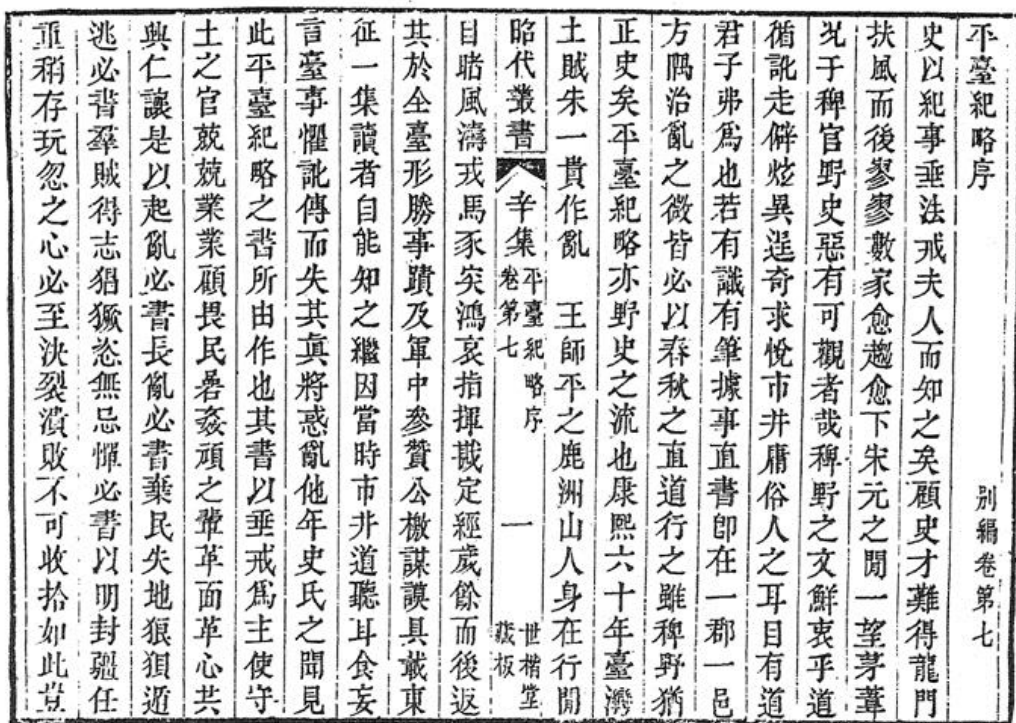 平臺紀略序
別編卷第七
史以紀事垂法戒夫人而知之矣顧史才難得龍門
扶風而後寥寥數家愈趨愈下宋元之閒一望茅葦
況于稗官野史惡有可觀者哉稗野之文鮮衷乎道
循訛走僻炫異逞奇求悅市井庸俗人之耳目有道
君子弗爲也若有識有筆據事直書卽在一郡一邑
方隅治亂之微皆必以春秋之直道行之雖稗野猶
正史矣平臺紀略亦野史之流也康熙六十年臺灣
土賊朱一貴作亂 王師平之鹿洲山人身在行閒
昭代叢書 辛集 平臺紀略序 卷第七 一 世楷堂 藏板
目睹風濤戎馬豕突鴻哀指揮戡定經歲餘而後返
其於全臺形勝事蹟及軍中參贊公檄謀謨具載東
征一集讀者自能知之繼因當時市井道聽耳食妄
言臺事懼訛傳而失其眞將惑亂他年史氏之聞見
此平臺紀略之書所由作也其書以垂戒爲主使守
土之官兢兢業業顧畏民碞姦頑之輩革面革心共
興仁讓是以起亂必書長亂必書棄民失地狼狽逋
逃必書羣賊得志猖獗恣無忌憚必書以明封疆任
重稍存玩忽之心必至決裂潰敗不可收拾如此豈